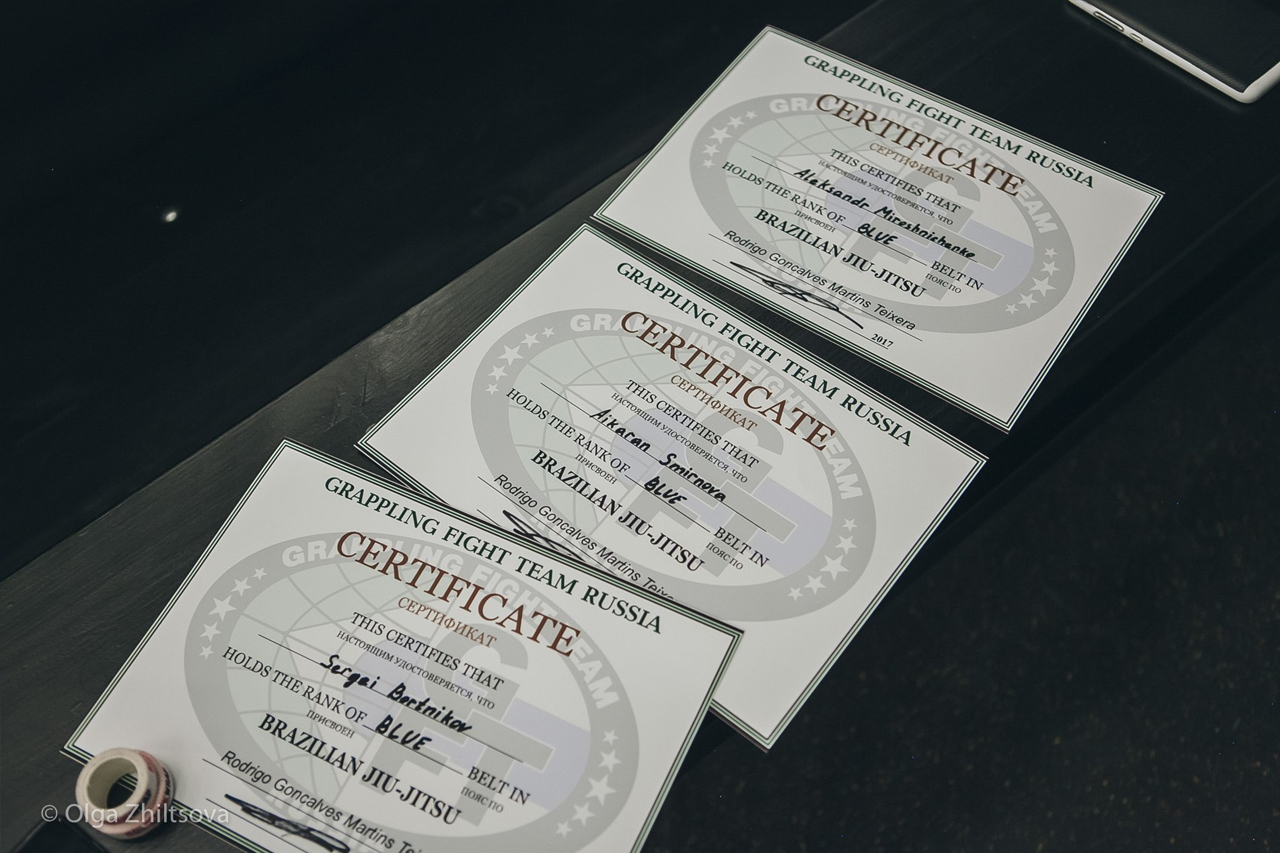 GRAPPLING FIGHT TEAM RUSSIA
CERTIFICATE
СЕРТИФИКАТ
THIS CERTIFIES THAT
НАСТОЯЩИМ УДОСТОВЕРЯЕТСЯ, ЧТО
Aleksandr Mireshnichenko
HOLDS THE RANK OF BLUE BELT IN
ПРИСВОЕН ПОЯС ПО
BRAZILIAN JIU-JITSU
Rodrigo Goncalves Martins Teixera
2017
GRAPPLING FIGHT TEAM
GRAPPLING FIGHT TEAM RUSSIA
CERTIFICATE
СЕРТИФИКАТ
THIS CERTIFIES THAT
НАСТОЯЩИМ УДОСТОВЕРЯЕТСЯ, ЧТО
Smirnova
HOLDS THE RANK OF BLUE BELT IN
ПРИСВОЕН ПОЯС ПО
BRAZILIAN JIU-JITSU
Rodrigo Goncalves Martins
GRAPPLING FIGHT TEAM
GRAPPLING FIGHT TEAM RUSSIA
CERTIFICATE
СЕРТИФИКАТ
THIS CERTIFIES THAT
НАСТОЯЩИМ УДОСТОВЕРЯЕТСЯ, ЧТО
Sergai Bortnikov
HOLDS THE RANK OF BLUE BELT IN
ПРИСВОЕН ПОЯС ПО
BRAZILIAN JIU-JITSU
Rodrigo Goncalves Martins
GRAPPLING FIGHT TEAM
© Olga Zhiltsova